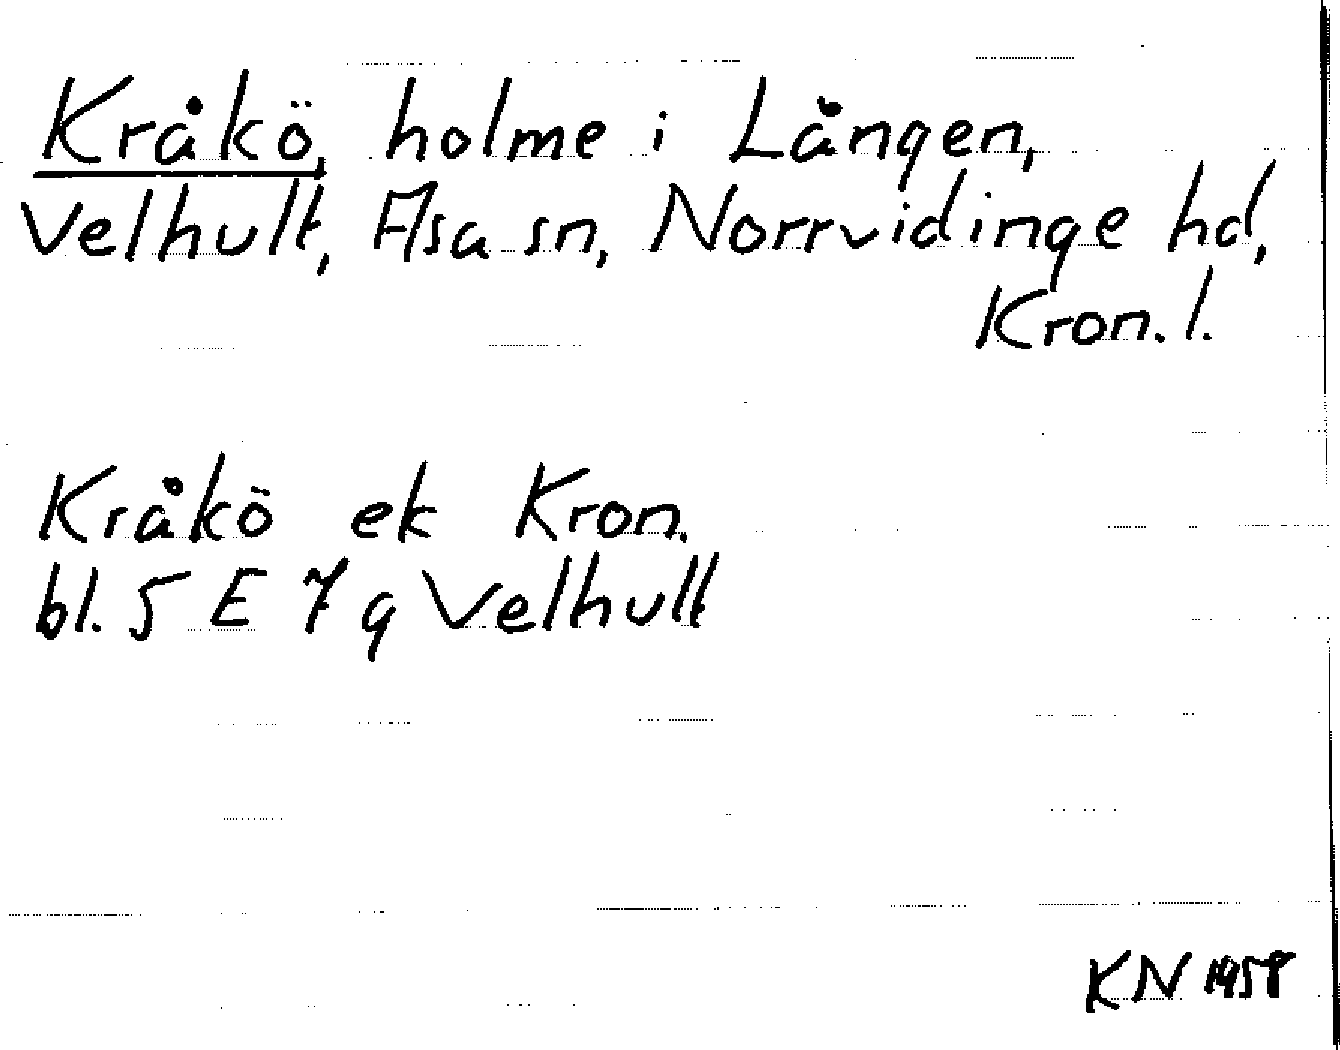 Kråkö, holme i Lången,
Velhult, Asa sn, Norrvidinge hd,
Kron. l.
Kråkö ek Kron.
bl. 5 E 7 g Velhult
KN 1958